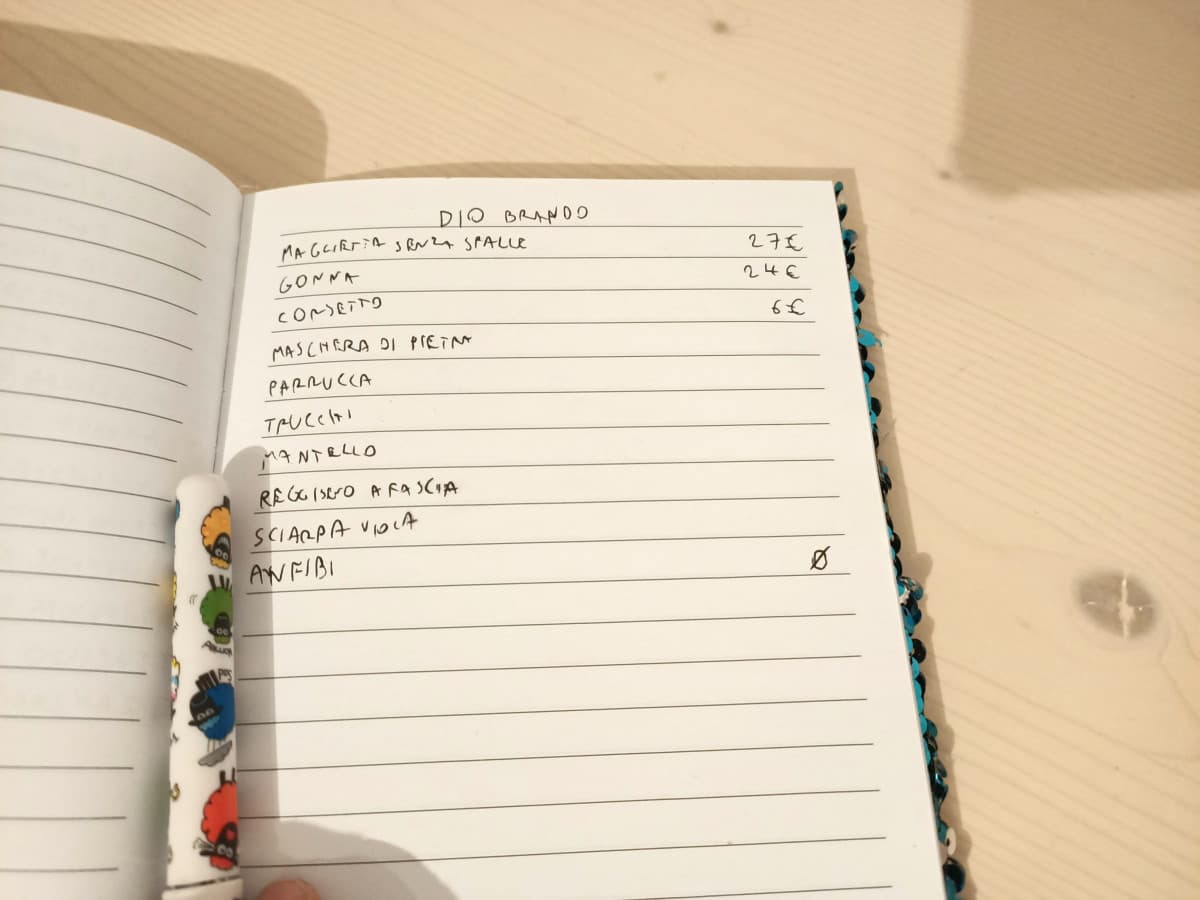 DIO BRANDO
MAGLIETTA SENZA SPALLE 27€
GONNA 24€
CORSETTO 6€
MASCHERA DI PIETRA
PARRUCCA
TRUCCHI
MANTELLO
REGGISENO A FASCIA
SCIARPA VIOLA
ANFIBI Ø